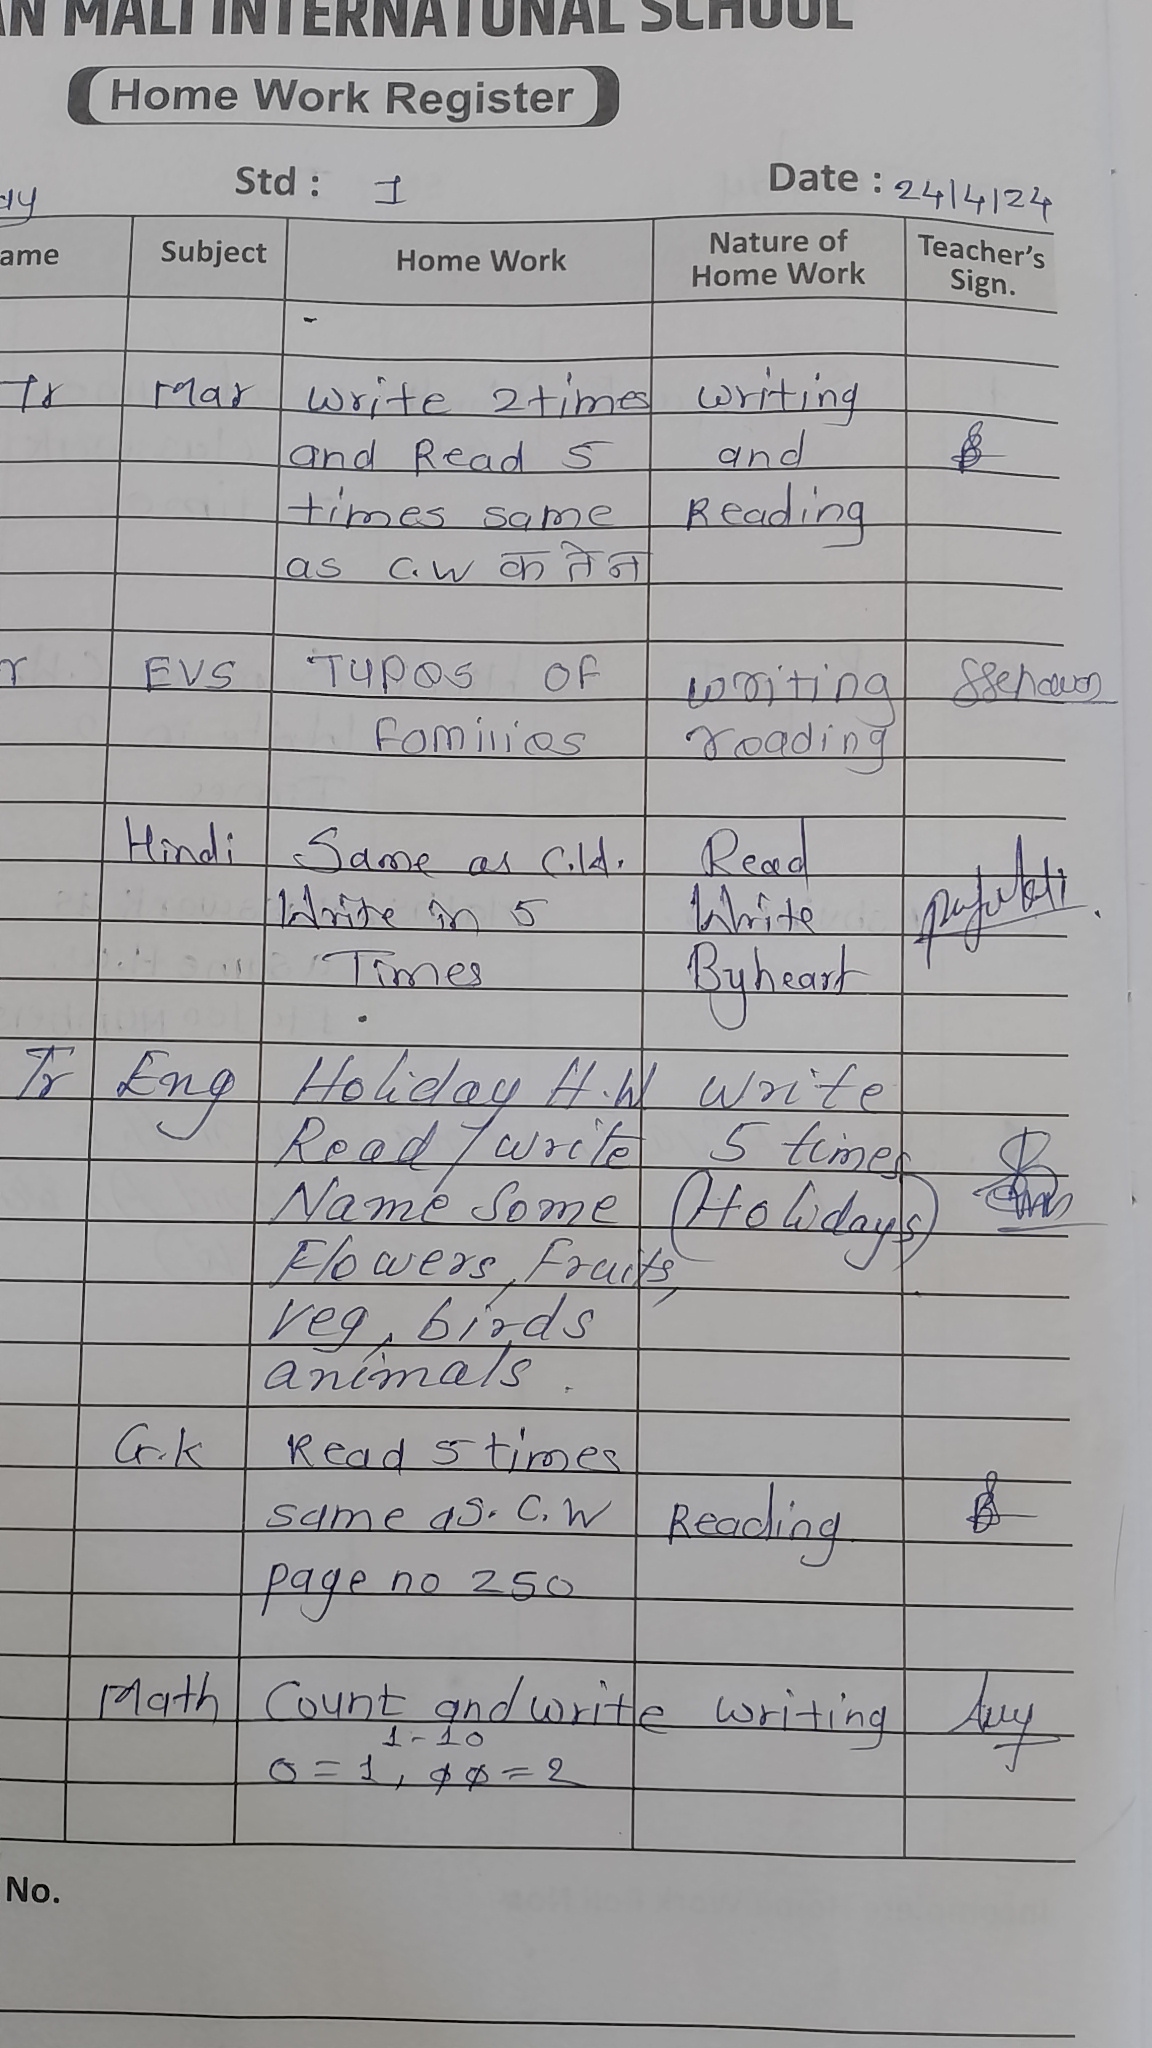 AN MALI INTERNATUNAL SCHOOL
Home Work Register
Std : I Date : 24/4/24
ame Subject Home Work Nature of Home Work Teacher's Sign.
-
Tr Mar Write 2 times writing
and Read 5 and
times same Reading
as C.W क ते न
r EVS Types of writing
families reading
Hindi Same as C.W. Read
Write in 5 Write
Times Byheart
Tr Eng Holiday H.W write
Read / write 5 times
Name Some (Holidays)
Flowers, Fruits,
veg, birds
animals.
G.k Read 5 times
same as. C.W Reading
page no 250
Math Count and write writing
1-10
0 = 1, 00 = 2
No.